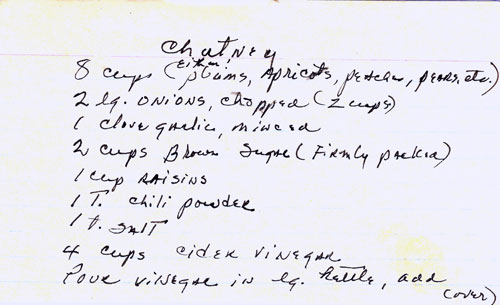 Chutney
8 cups (either plums, Apricots, peaches, pears, etc.)
2 lg. onions, chopped (2 cups)
1 clove garlic, minced
2 cups Brown Sugar (Firmly packed)
1 cup RAISINS
1 T. chili powder
1 t. SALT
4 cups cider vinegar
Pour vinegar in lg. kettle, add
(over)